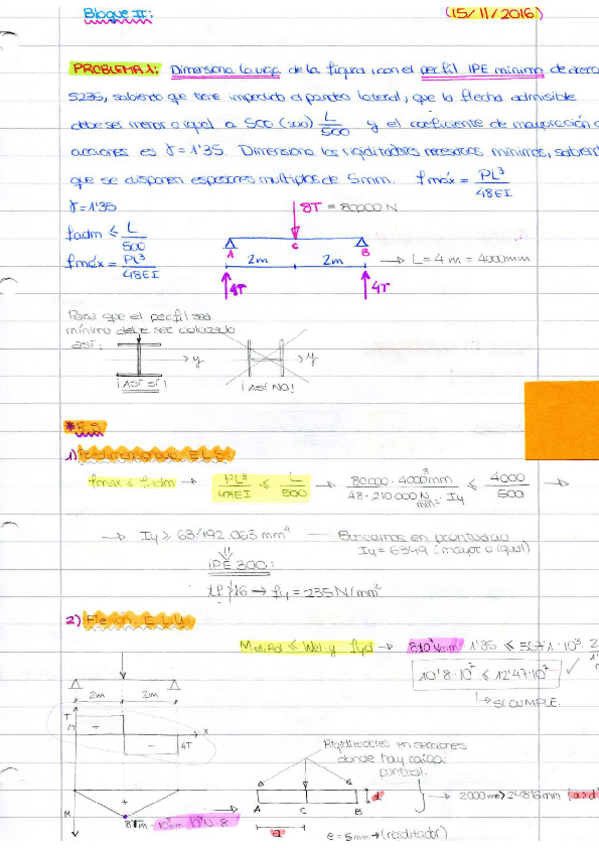 Bloque II:
(15/11/2016)
PROBLEMA 1: Dimensiona la viga de la figura con el perfil IPE mínimo de acero
S235, sabiendo que tiene impedido el pandeo lateral, que la flecha admisible
debe ser menor o igual a L/500 y el coeficiente de mayoración
acciones es γ=1'35. Dimensiona los rigidizadores necesarios mínimos,
que se disponen espesores multiplos de 5mm. fmáx = PL³/48EI
γ=1'35
fadm ≤ L/500
fmáx = PL³/48EI
8T = 80000 N
A C B
2m 2m → L=4m=4000mm
4T 4T
Para que el perfil sea
mínimo debe ser colocado
así:
y y
¡ASÍ SÍ! ¡ASÍ NO!
1) Predimensionado E.L.S:
fmax ≤ fadm → PL³/48EI ≤ L/500 → 80000·4000³mm/48·210000 N/mm²·Iy ≤ 4000/500 →
→ Iy ≥ 63492063 mm⁴ — Buscamos en prontuario
Iy = 6349 (mayor o igual)
IPE 300:
fy = 235 N/mm²
2) Flexión E.L.U:
1'35 ≤
10'8·10² ≤ 12'47·10² ✓
↳ SI CUMPLE.
2m 2m
T
+
x
- 4T
Rigidizadores en secciones
donde hay carga
puntual.
M
+
A C B
d
a
→ 2000mm > 248'6mm (a>d)
e=5mm → (rigidizador)